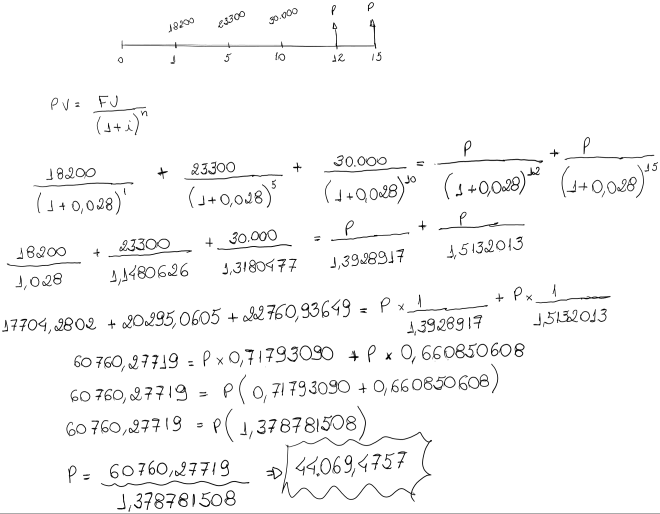 18200 23300 30.000 P P
0 1 5 10 12 15
PV = FV / (1+i)^n
18200 / (1+0,028)^1 + 23300 / (1+0,028)^5 + 30.000 / (1+0,028)^10 = P / (1+0,028)^12 + P / (1+0,028)^15
18200 / 1,028 + 23300 / 1,1480626 + 30.000 / 1,3180477 = P / 1,3928917 + P / 1,5132013
17704,2802 + 20295,0605 + 22760,93649 = P × 1 / 1,3928917 + P × 1 / 1,5132013
60760,27719 = P × 0,71793090 + P × 0,660850608
60760,27719 = P(0,71793090 + 0,660850608)
60760,27719 = P(1,378781508)
P = 60760,27719 / 1,378781508 ⇒ 44.069,4757